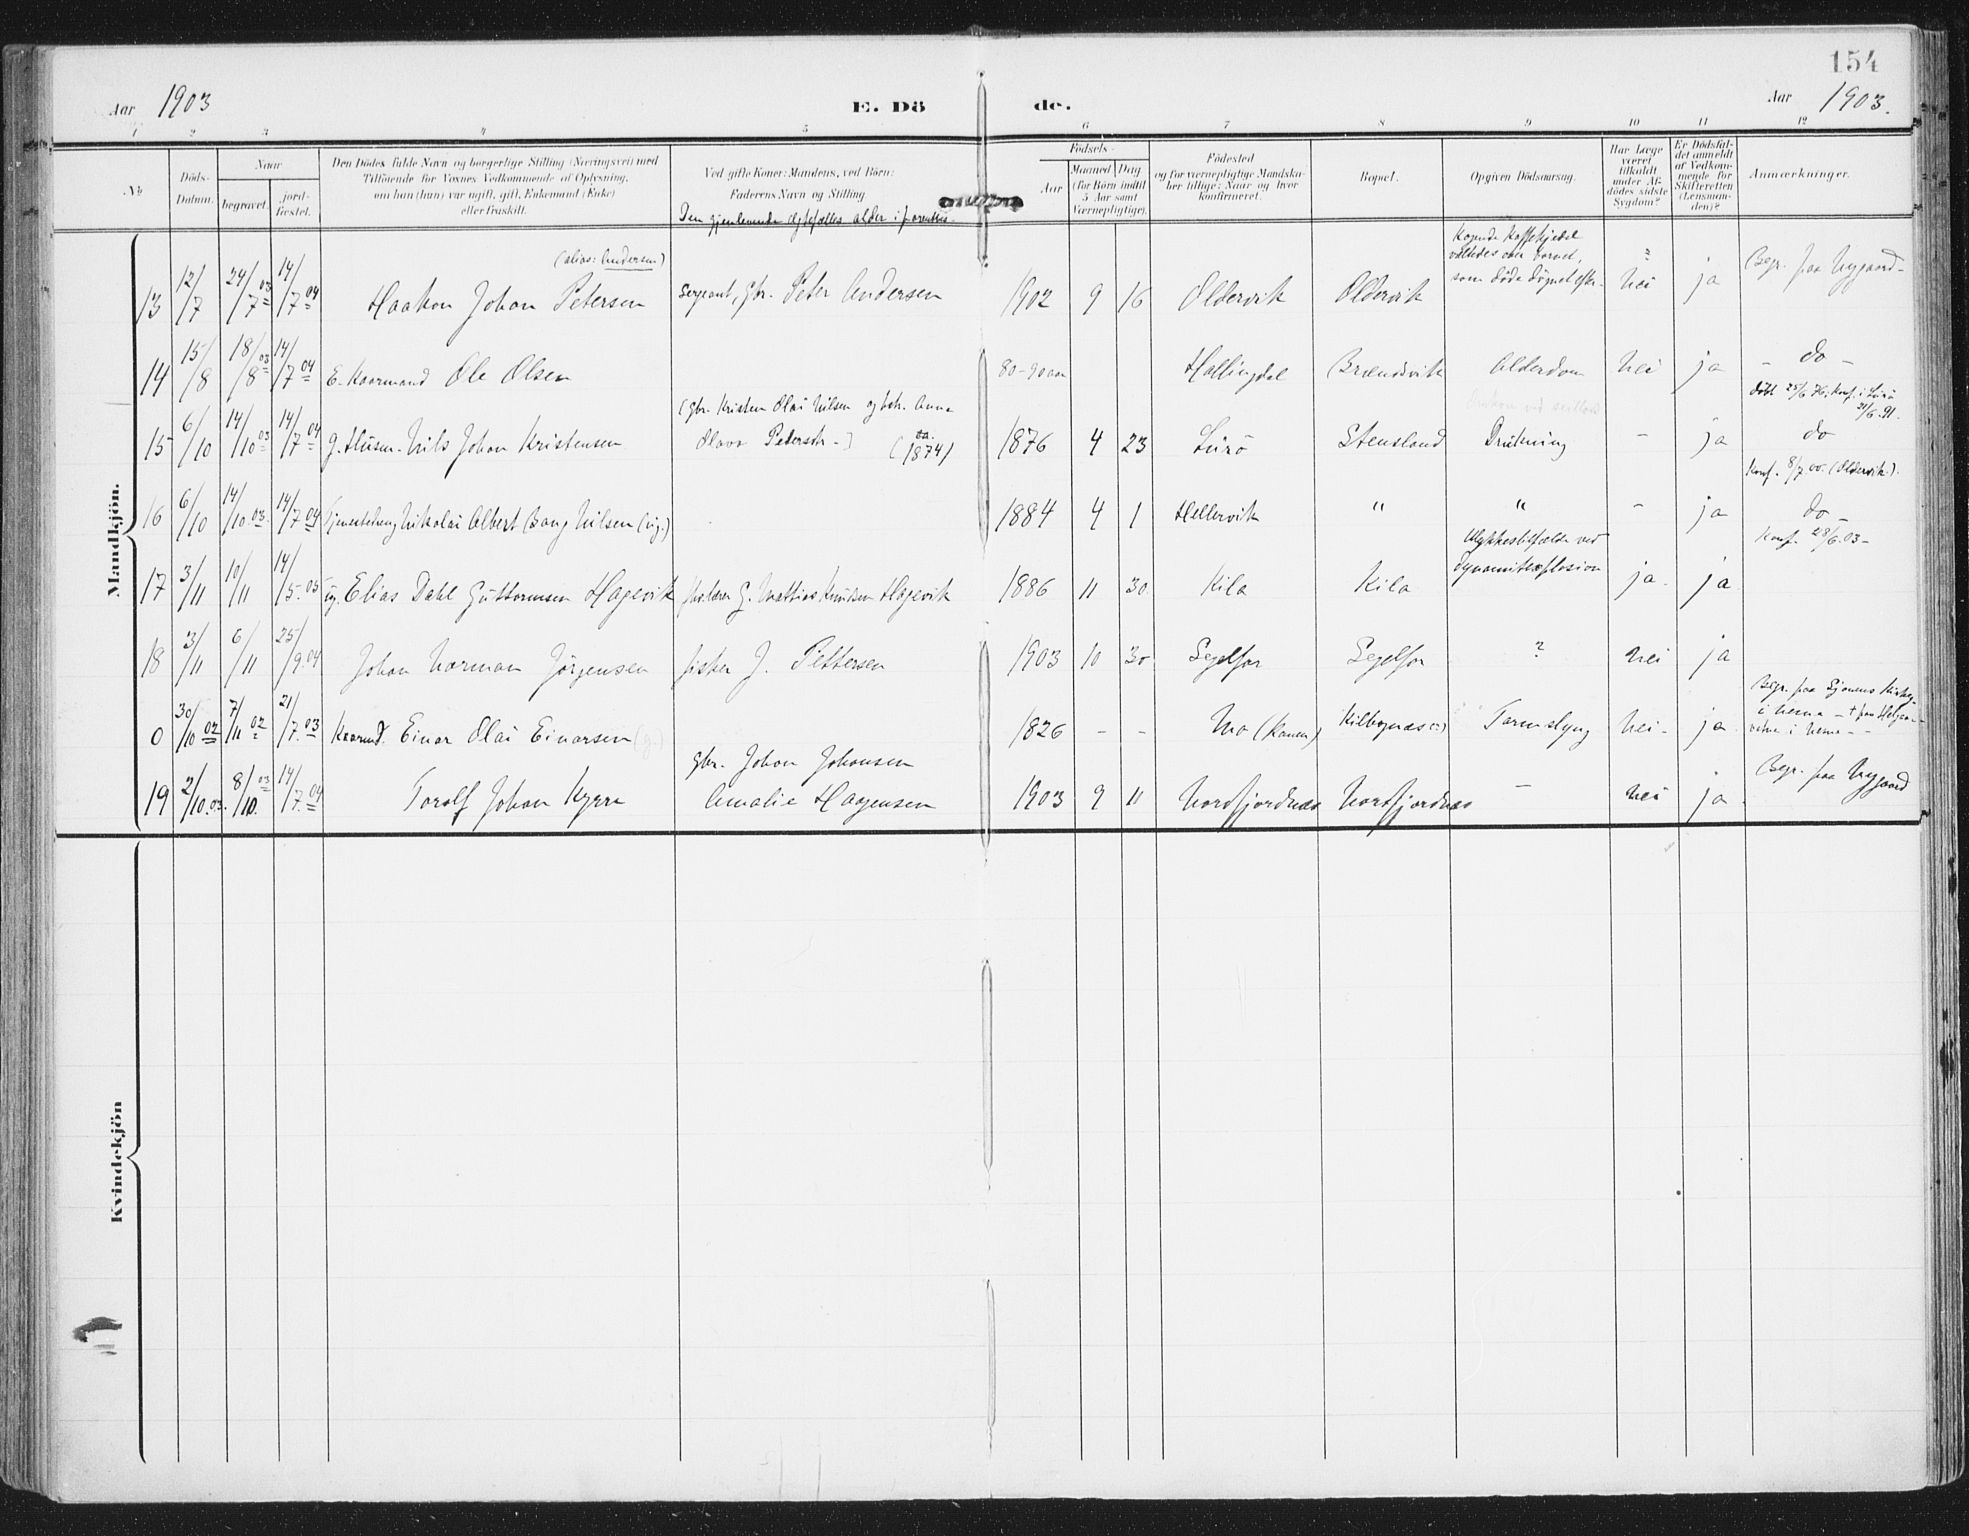 154
Aar 1903
E. Dö de.
Aar 1903.
1 2 3 4 5 6 7 8 9 10 11 12
No
Döds-Datum.
Naar
begravet.
jord-fæstet.
Den Dödes fulde Navn og borgerlige Stilling (Næringsvei) med
Tilföiende for Voxnes Vedkommende af Oplysning,
om han (hun) var ugift, gift, Enkemand (Enke)
eller fraskilt.
Ved gifte Koner: Mandens, ved Börn:
Faderens Navn og Stilling
Den gjenlevende Ægtefælles alder i parentes.
Födsels-
Aar
Maaned
Dag
(for Börn indtil
5 Aar samt
Værnepligtige).
Födested
og for værnepligtige Mandska-
ber tillige: Naar og hvor
konfirmeret.
Bopæl.
Opgiven Dödsaarsag.
Har Læge
været
tilkaldt
under Af-
dödes sidste
Sygdom?
Er Dödsfal-
det anmeldt
af Vedkom-
mende for
Skifteretten
(Lensman-
den)?
Anmærkninger.
Mandkjön.
(alias: Andersen)
Kogende Kaffekjedel
væltedes over barnet,
som døde døgnet efter.
13 12/7 24/7 03 14/7 04 Haakon Johan Petersen Sergeant, gbr. Peter Andersen 1902 9 16 Oldervik Oldervik ? nei ja Begr. paa Nygaard-
14 15/8 18/8 03 14/7 04 E. Kaarmand Ole Olsen 80-90 aar Hallingdal Brændsvik Alderdom nei ja - do -
(gbr. Kristen Olai Nilsen og hstr. Anna
Olava Petersdr.) (ca. 1874)
født 25/6 76, Konf. i Lurö
21/6. 91.
15 6/10 14/10 03 14/7 04 g. Husm. Nils Johan Kristensen 1876 4 23 Lurö Stensland Drukning - ja do
Konf. 8/7 00. (Oldervik).
16 6/10 14/10 03. 14/7 04 Tjenestedreng Nikolai Albert Bang Nilsen (ug.) 1884 4 1 Hellervik " " - ja do -
Konf. 28/6. 03-
Ulykkestilfælde ved
dynamitexplosion
17 3/11 10/11 14/5. 05 ug. Elias Dahl Guttormsen Hagevik G. Mathias Knutsen Hagevik 1886 11 30 Kila Kila ja. ja
18 3/11 6/11 25/9. 04 Johan Norman Jörgensen fisker J. Pettersen 1903 10 30 Segelfor Segelfor ? nei ja
0 30/10 02 7/11 02 21/7. 03 Kaarmd. Einar Olai Einarsen (g.) 1826 - - Mo (Ranen) Tarmslyng nei- ja.
Begr. paa Sjonens Kirkeg.
i Nesna -
19 2/10. 03. 8/10. 03 14/7. 04 Torolf Johan Kyrre gbr. Johan Johansen
Amalie Hagensen 1903 9 11 Nordfjordnæs Nordfjordnæs - nei ja. Begr. paa Nygaard
Kvindekjön